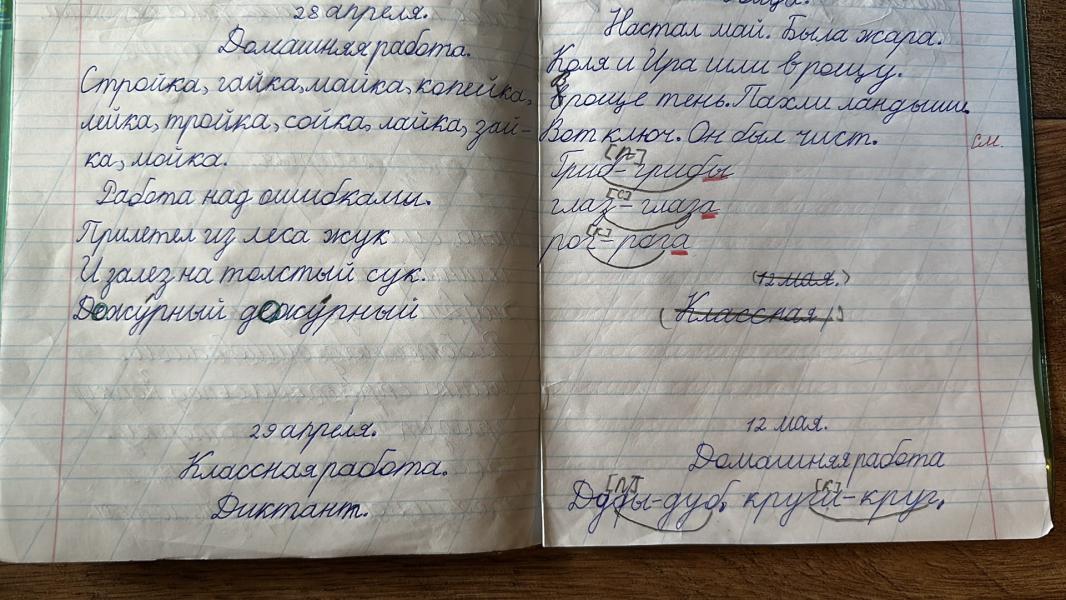 28 апреля.
Домашняя работа.
Стройка, гайка, майка, копейка,
лейка, тройка, сойка, лайка, зай-
ка, мойка.
Работа над ошибками.
Прилетел из леса жук
И залез на толстый сук.
Дежурный дежурный
29 апреля.
Классная работа.
Диктант.
Настал май. Была жара.
Коля и Ира шли в рощу.
В роще тень. Пахли ландыши.
Вот ключ. Он был чист.
см.
[п]
Гриб-грибы
[с]
глаз-глаза
[к]
рог-рога
(12 мая.)
(Классная)
12 мая.
Домашняя работа
[п] [к]
Дубы-дуб, круги-круг.